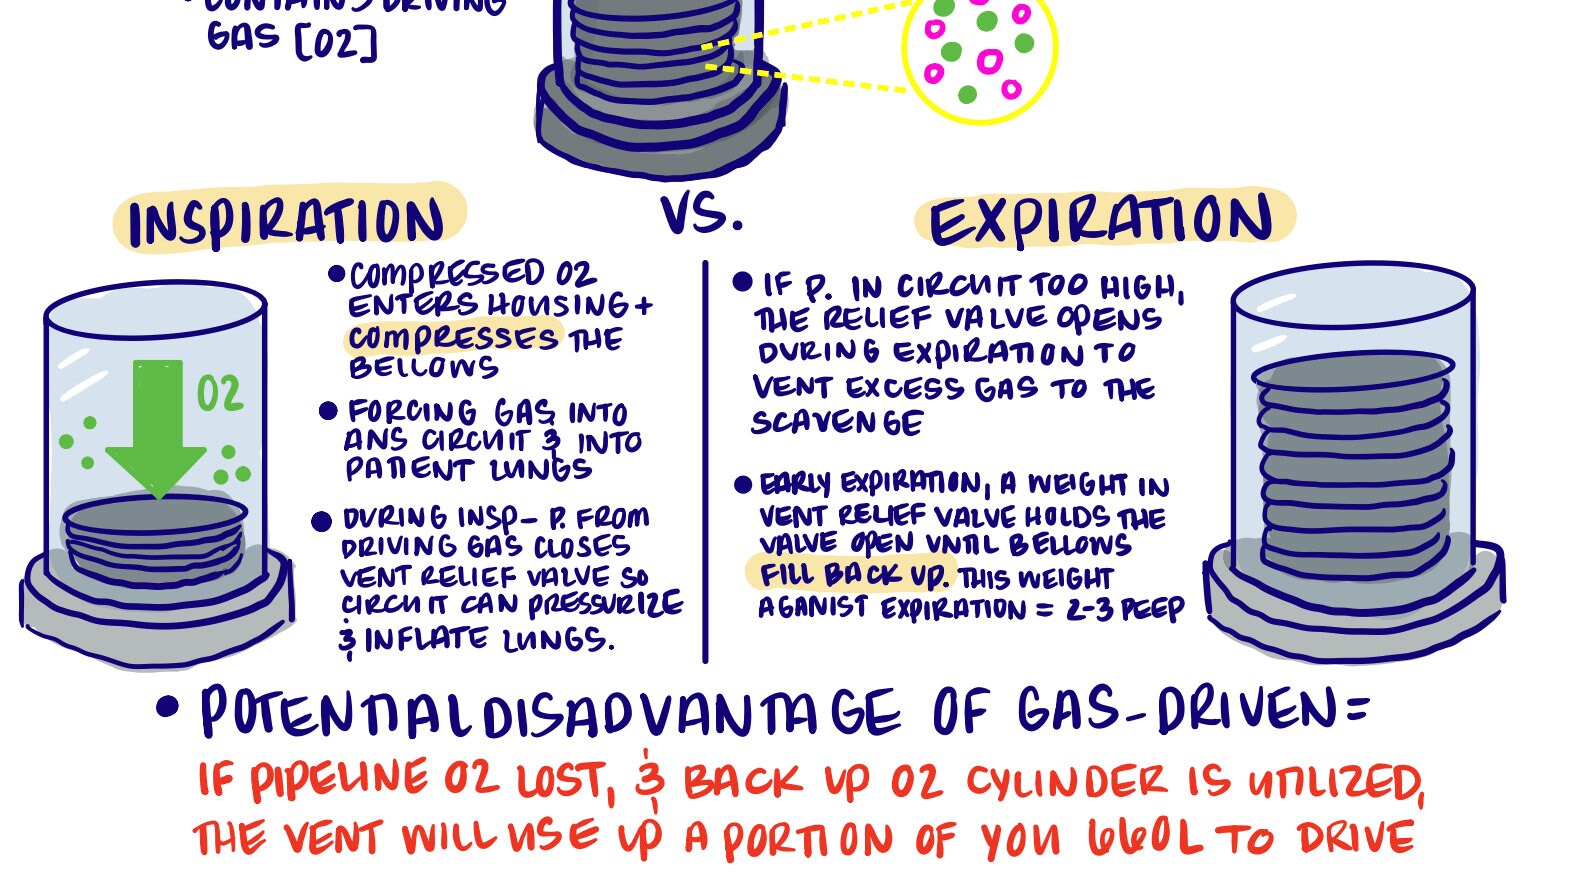 CONTAINS DRIVING
GAS [O2]
INSPIRATION
VS.
EXPIRATION
• COMPRESSED O2
ENTERS HOUSING +
COMPRESSES THE
BELLOWS
• FORCING GAS INTO
ANS CIRCUIT & INTO
PATIENT LUNGS
• DURING INSP- P. FROM
DRIVING GAS CLOSES
VENT RELIEF VALVE SO
CIRCUIT CAN PRESSURIZE
& INFLATE LUNGS.
O2
• IF P. IN CIRCUIT TOO HIGH,
THE RELIEF VALVE OPENS
DURING EXPIRATION TO
VENT EXCESS GAS TO THE
SCAVENGE
• EARLY EXPIRATION, A WEIGHT IN
VENT RELIEF VALVE HOLDS THE
VALVE OPEN UNTIL BELLOWS
FILL BACK UP. THIS WEIGHT
AGANIST EXPIRATION = 2-3 PEEP
• POTENTIAL DISADVANTAGE OF GAS-DRIVEN=
IF PIPELINE O2 LOST, & BACK UP O2 CYLINDER IS UTILIZED,
THE VENT WILL USE UP A PORTION OF YOU 660L TO DRIVE